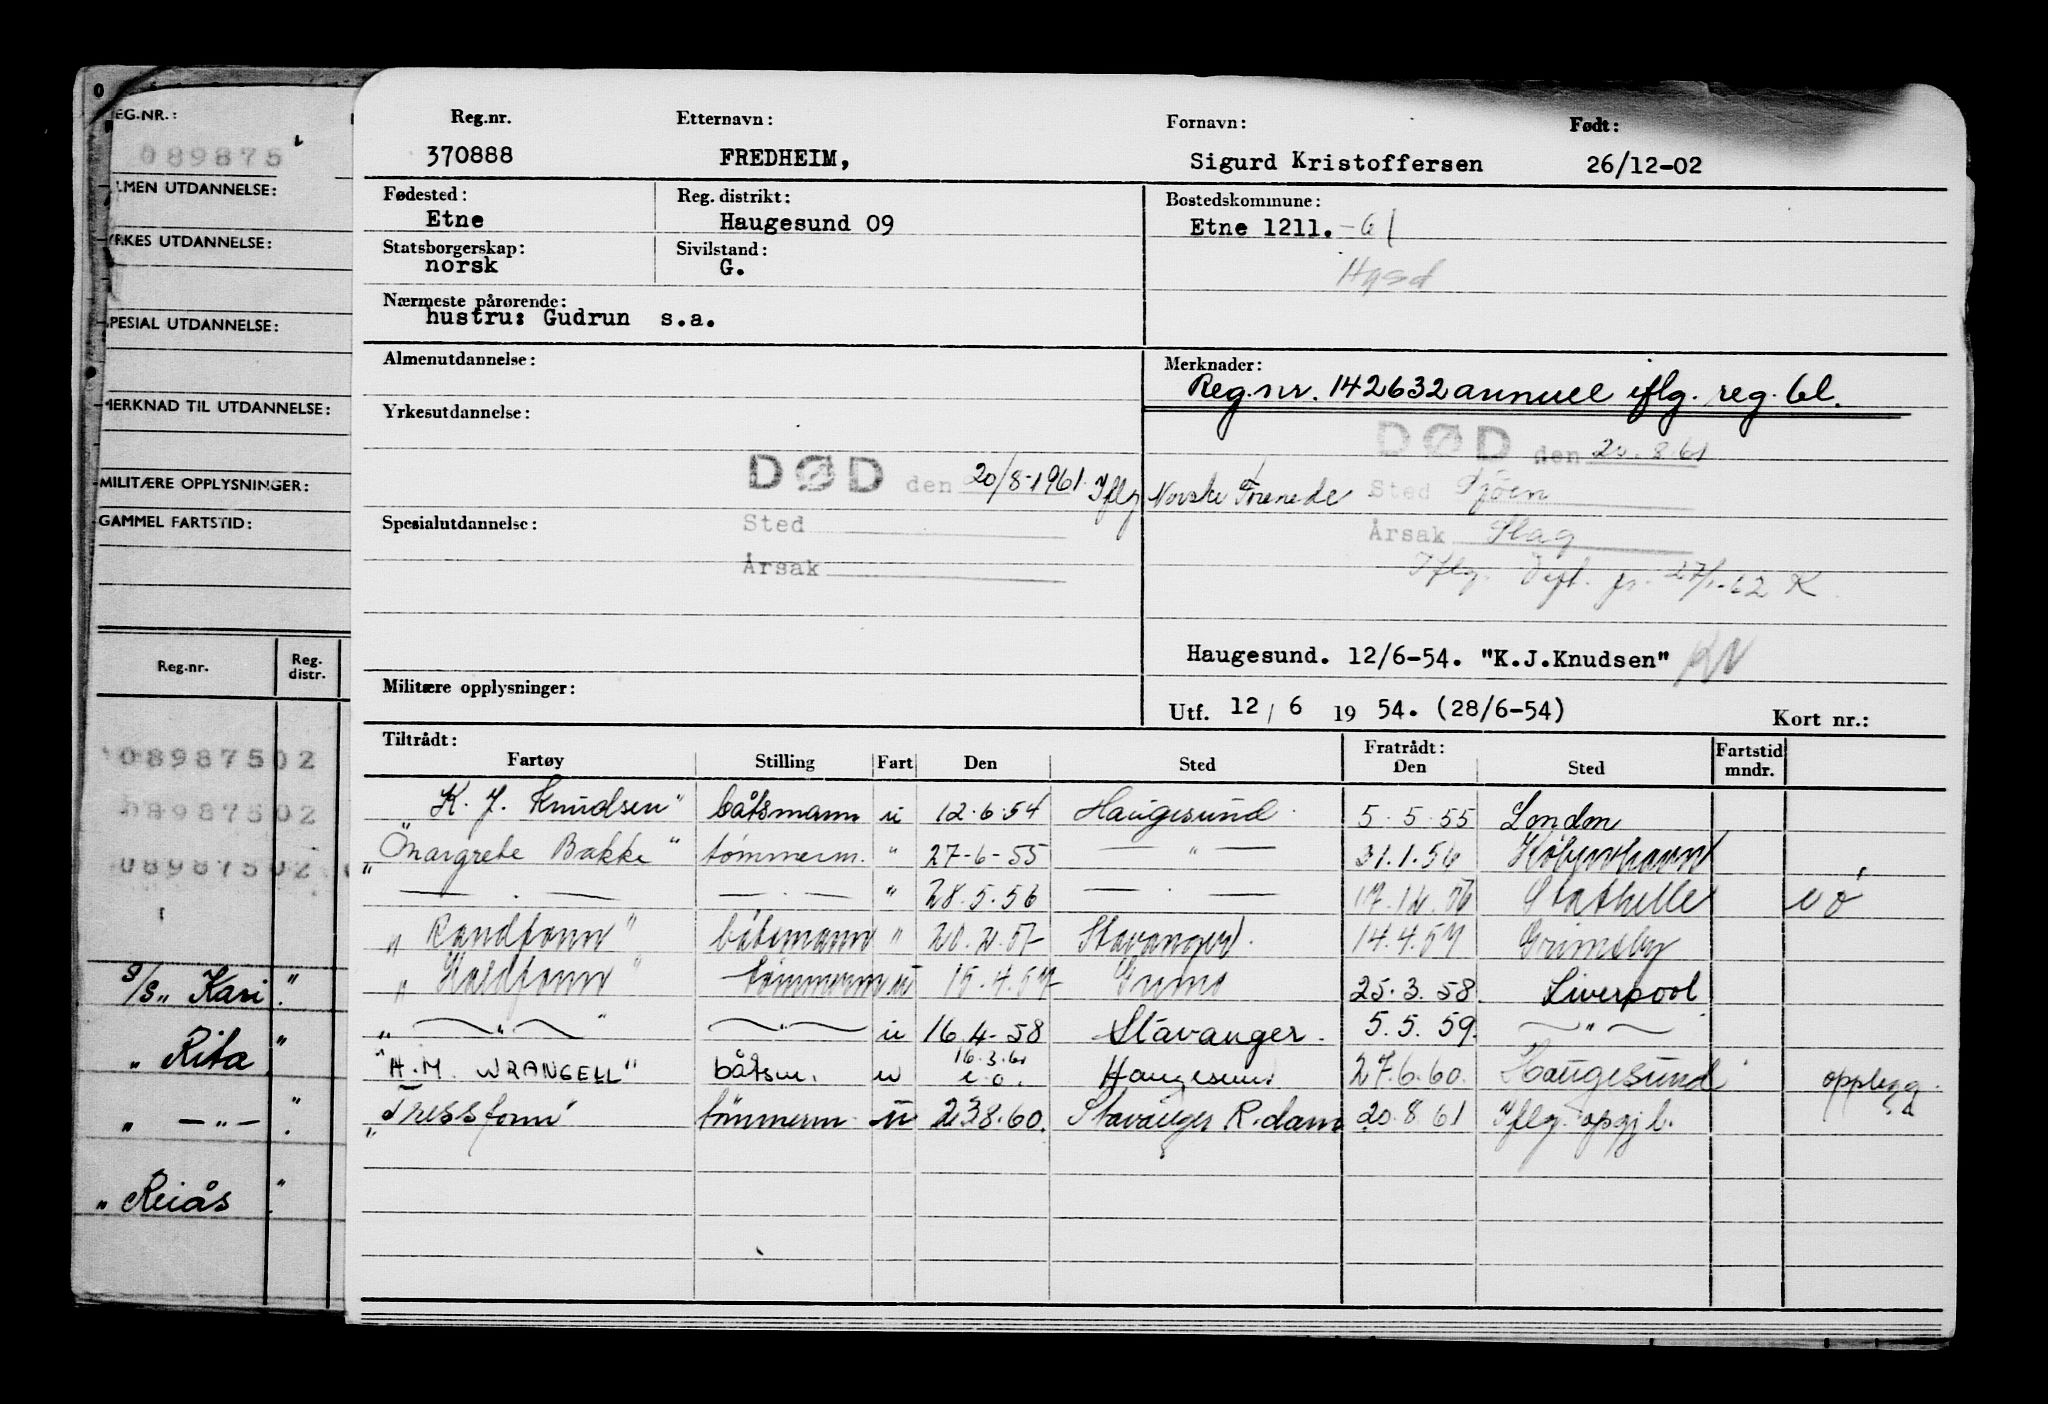 EG.NR.:
089875
LMEN UTDANNELSE:
YRKES UTDANNELSE:
SPESIAL UTDANNELSE:
MERKNAD TIL UTDANNELSE:
MILITÆRE OPPLYSNINGER:
GAMMEL FARTSTID:
Reg.nr. Reg. distr.
08987502
08987502
08987502
S/S „ Kari "
„ Rita "
„ — „ — "
„ Reiås "
Reg.nr. Etternavn: Fornavn: Født:
370888 FREDHEIM, Sigurd Kristoffersen 26/12-02
Fødested: Reg. distrikt: Bostedskommune:
Etne Haugesund 09 Etne 1211. -61
Statsborgerskap: Sivilstand:
norsk G. Hgsd
Nærmeste pårørende:
hustru: Gudrun s.a.
Almenutdannelse: Merknader:
Reg.nr. 142632 annuel iflg. reg. bl.
Yrkesutdannelse:
DØD den 20/8-1961. Iflg Norske Forenede
DØD den 20.8.61
Sted Sjøen
Spesialutdannelse: Sted
Årsak Slag
Årsak
Iflg. 27/1-62 K
Haugesund. 12/6-54. "K.J.Knudsen" KN
Militære opplysninger: Utf. 12 / 6 19 54. (28/6-54) Kort nr.:
Tiltrådt: Fratrådt: Fartstid
Fartøy Stilling Fart Den Sted Den Sted mndr.
" K. J. Knudsen" båtsmann u 12.6.54 Haugesund 5.5.55 London
„ Margrete Bakke " tømmerm. " 27-6-55 — " — 31.1.56 Københavns
— . — — . — " 28.5.56 — . — 17.12.56 Stathelle
„ Randfonn " båtsmann " 20.2.57 Stavanger. 14.4.57 Grimsby
„ Haldfonn " tømmerm u 15.4.57 25.3.58. Liverpool
„ — " — " — " — u 16.4-58 Stavanger. 5.5.59. — " —
"H.M. WRANGELL" båtsm. u 16.3.60 Haugesund 27.6.60. Haugesund opplegg.
„ Tressfonn" tømmerm. u 23.8.60. Stavanger R.dam 20.8.61 Iflg. opgj b.